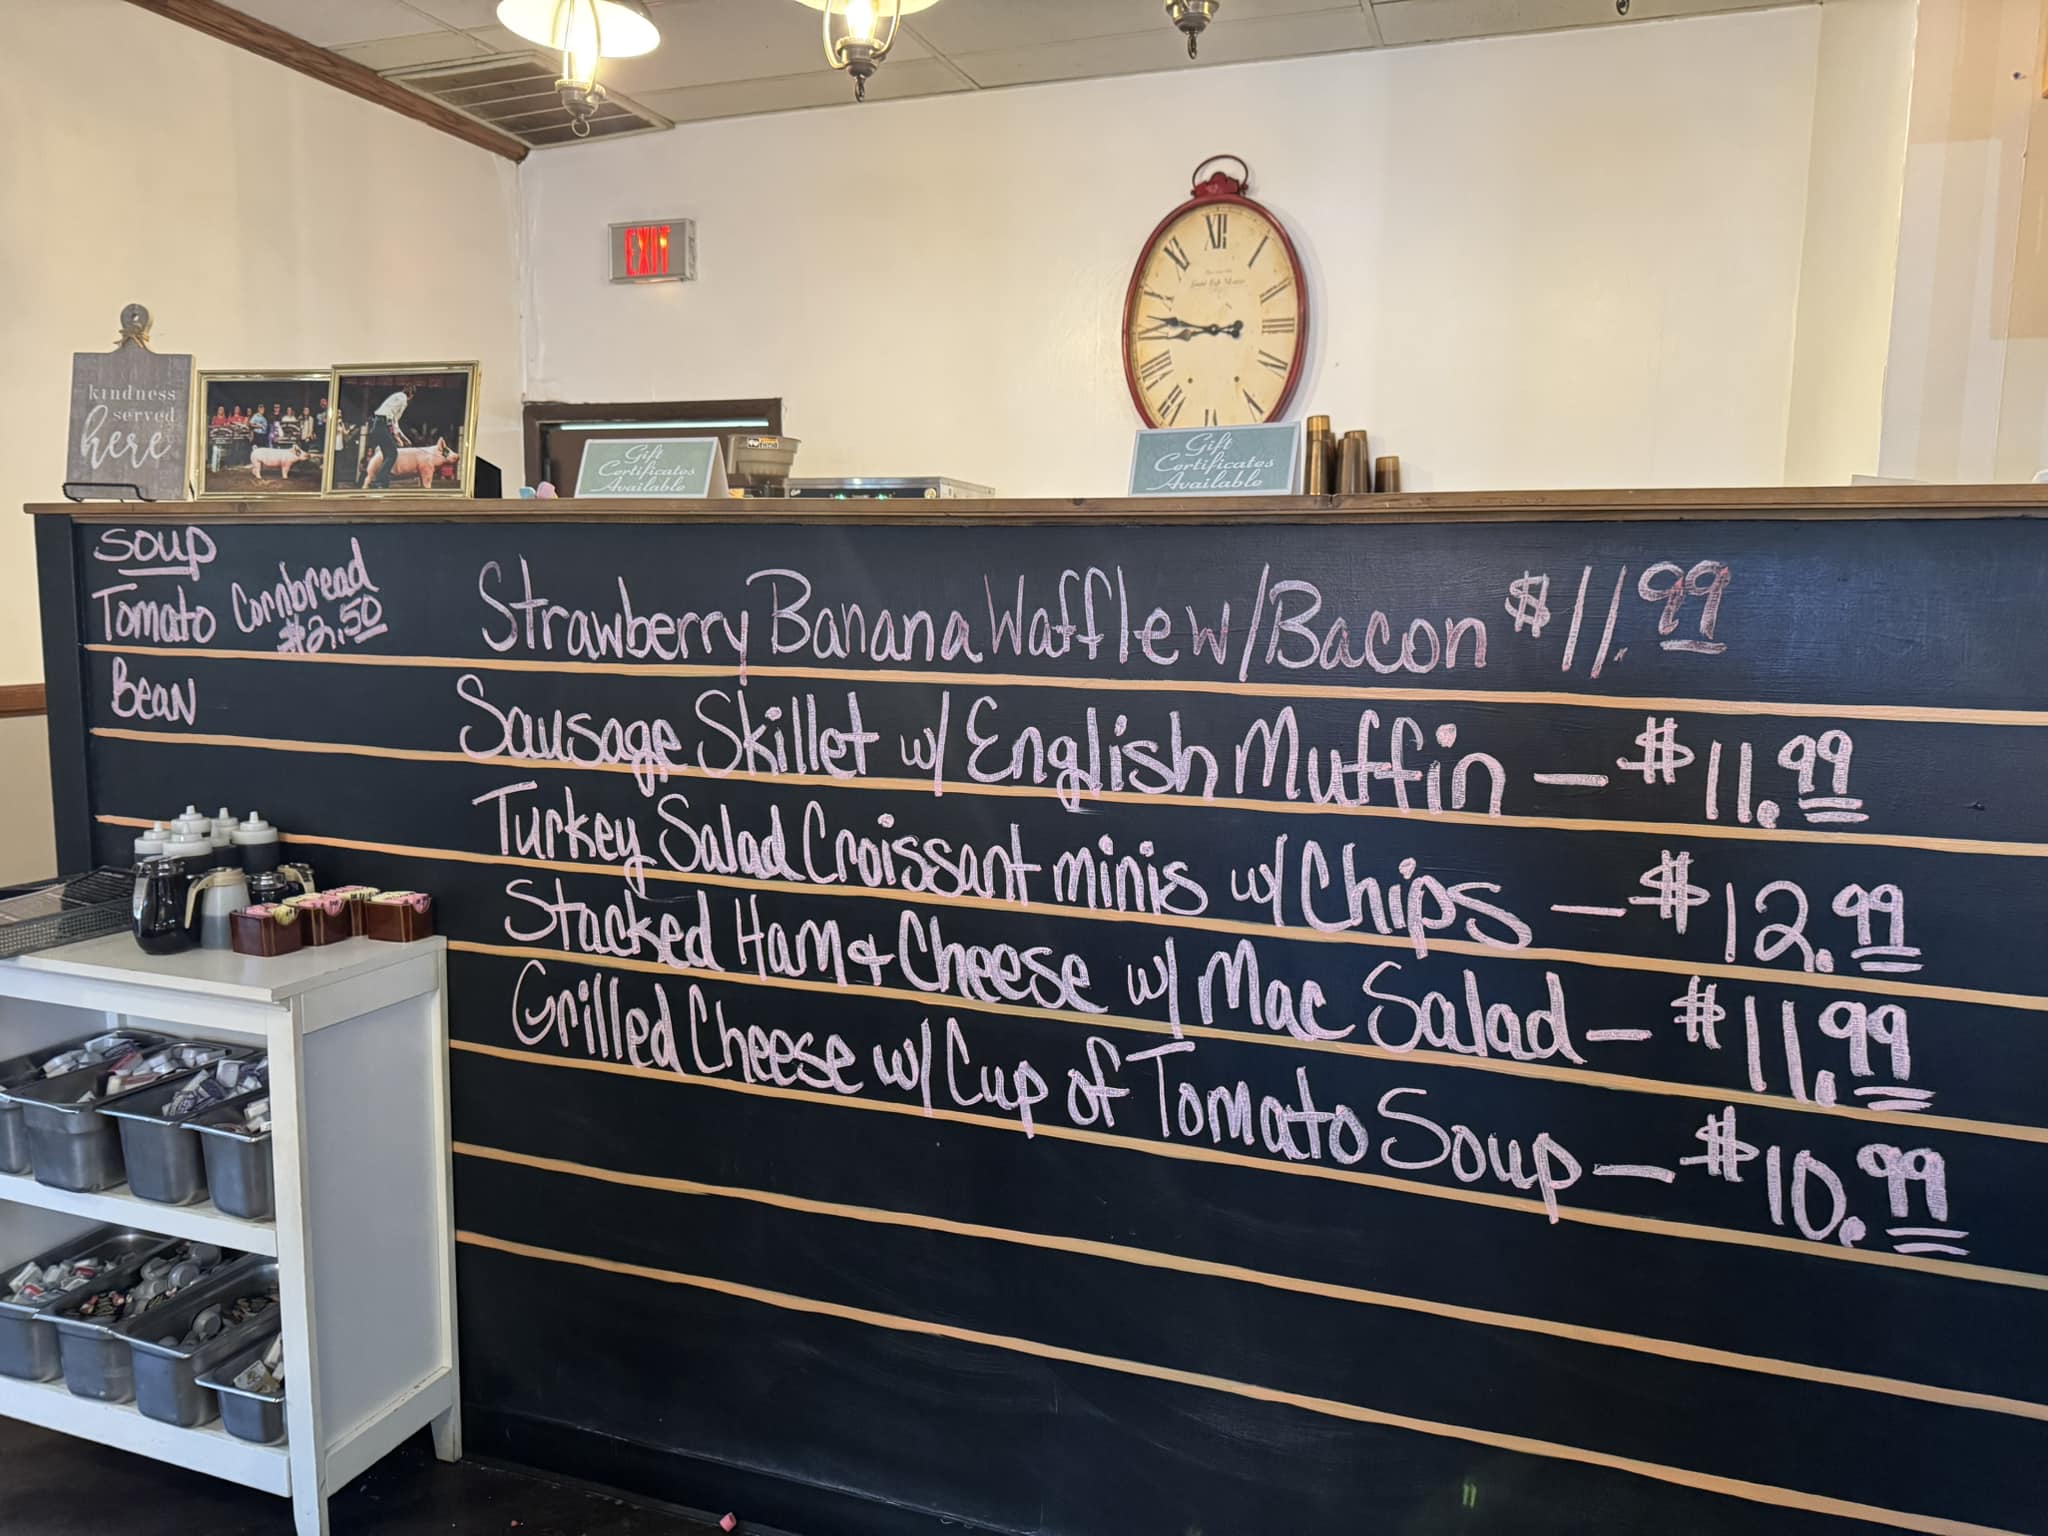 EXIT
kindness
served
here
Gift
Certificates
Available
Gift
Certificates
Available
SOUP
Tomato
Cornbread
$2.50
Bean
Strawberry Banana Waffle w/Bacon $11.99
Sausage Skillet w/ English Muffin - $11.99
Turkey Salad Croissant minis w/ Chips - $12.99
Stacked Ham & Cheese w/ Mac Salad - $11.99
Grilled Cheese w/ Cup of Tomato Soup - $10.99